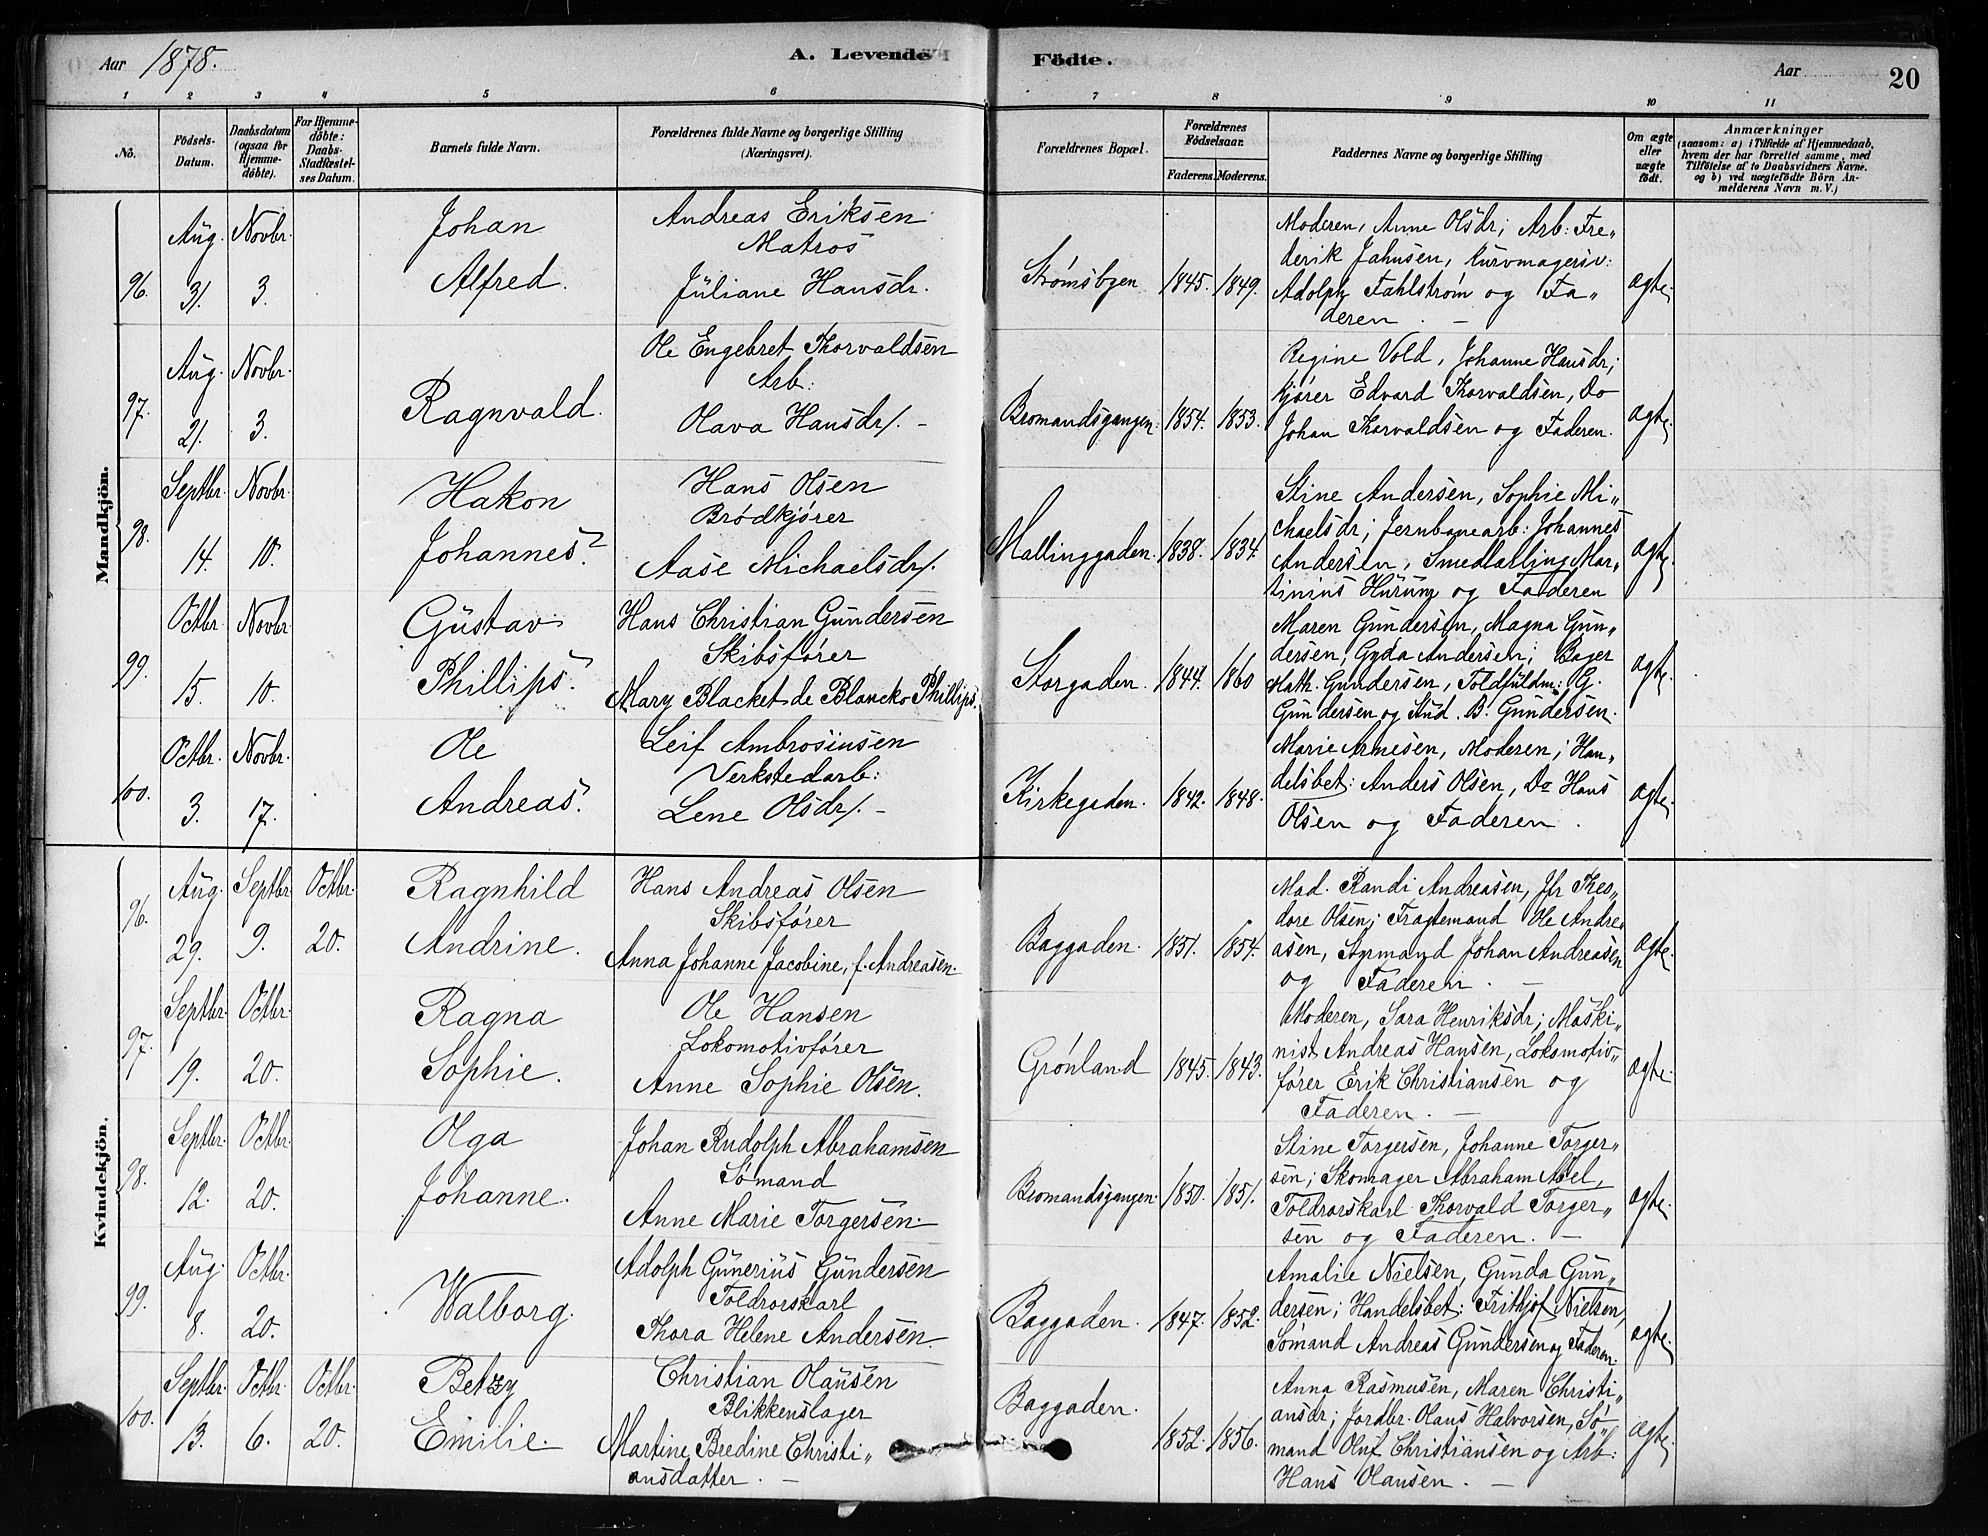 Aar 1878. A. Levende Födte. Aar 20
1 2 3 4 5 6 7 8 9 10 11
No. Födsels-Datum. Daabsdatum (ogsaa for Hjemme-döbte). For Hjemme-döbte: Daabs-Stadfæstel-ses Datum. Barnets fulde Navn. Forældrenes fulde Navne og borgerlige Stilling (Næringsvei). Forældrenes Bopæl. Forældrenes Födselsaar. Faderens. Moderens. Faddernes Navne og borgerlige Stilling Om ægte eller uægte födt. Anmærkninger (saasom: a) i Tilfælde af Hjemmedaab, hvem der har forrettet samme, med Tilföielse af to Daabsvidners Navne, og b) ved uægtefödte Börn An-melderens Navn m. V.)
Mandkjön.
96. Aug. 31. Novbr. 3. Johan Alfred.
Andreas Eriksen
Matros
Juliane Hansdr.
Strømsbyen 1845. 1849.
Moderen, Anne Olsdr; Arb: Fre„
derik Jahnsen, Kurvmagersv:
Adolph Fahlstrøm og Fa„
deren. —
ægte.
97. Aug. 21. Novbr. 3. Ragnvald.
Ole Engebret Thorvaldsen
Arb:
Olava Hansdr/. -
Bromandsgangen. 1854. 1853.
Regine Vold, Johanne Hansdr;
kjører Edvard Thorvaldsen, Do
Johan Thorvaldsen og Faderen.
ægte.
98. Septbr. 14. Novbr. 10. Hakon Johannes.
Hans Olsen
Brødkjører
Aase Michaelsdr/.
Mallinggaden. 1838. 1834.
Stine Andersen, Sophie Mi„
chaelsdr; Jernbanearb: Johannes
Andersen, Smedlærling Mar„
tinius Hurum og Faderen
ægte.
99. Octbr. 15. Novbr. 10. Gustav Phillips.
Hans Christian Gundersen
Skibsfører
Mary Blacket de Blancko Phillips.
Storgaden. 1844. 1860
Maren Gundersen, Magna Gun„
dersen, Gyda Andersen; Bager
Math. Gundersen, Toldfuldm: G.
Gundersen og Stud. B. Gundersen.
ægte.
100. Octbr. 3. Novbr. 17. Ole Andreas.
Leif Ambrosiusen
Verkstedarb:
Lene Olsdr/. -
Kirkegaden. 1842. 1848.
Marie Arnesen, Moderen; Han„
delsbet: Anders Olsen, Do Hans
Olsen og Faderen.
ægte.
Kvindekjön.
96. Aug. 29. Septbr. 9. Octbr. 20. Ragnhild Andrine.
Hans Andreas Olsen
Skibsfører
Anna Johanne Jacobine, f. Andreasen.
Baggaden. 1851. 1854.
Mad. Randi Andreasen, Jfr Theo„
dore Olsen; Fragtemand Ole Andre„
asen, Styrmand Johan Andreasen
og Faderen. —
ægte.
97. Septbr. 19. Octbr. 20. Ragna Sophie.
Ole Hansen
Lokomotivfører
Anne Sophie Olsen.
Grønland 1845. 1843.
Moderen, Sara Henriksdr; Maski„
nist Andreas Hansen, Lokomotiv„
fører Erik Christiansen og
Faderen. —
ægte.
98. Septbr. 12. Octbr. 20. Olga Johanne.
Johan Rudolph Abrahamsen
Sømand
Anne Marie Torgersen.
Bromandsgangen. 1850. 1851.
Stine Torgersen, Johanne Torger„
sen; Skomager Abraham Abel,
Toldrorskarl Thorvald Torger„
sen og Faderen. —
ægte.
99. Aug. 8. Octbr. 20. Walborg.
Adolph Gunerius Gundersen
Toldrorskarl
Thora Helene Andersen.
Baggaden. 1847. 1852.
Amalie Nielsen, Gunda Gun„
dersen; Handelsbet: Frithjof Nielsen,
Sømand Andreas Gundersen og Faderen.
ægte.
100. Septbr. 13. Octbr. 6. Octbr. 20. Betzy Emilie.
Christian Olausen
Blikkenslager
Martine Bredine Christi„
ansdatter. —
Baggaden. 1852. 1856.
Anna Rasmusen, Maren Christi„
ansdr; Jordbr. Olaus Halvorsen, Sø„
mand Oluf Christiansen og Arb:
Hans Olausen. —
ægte.